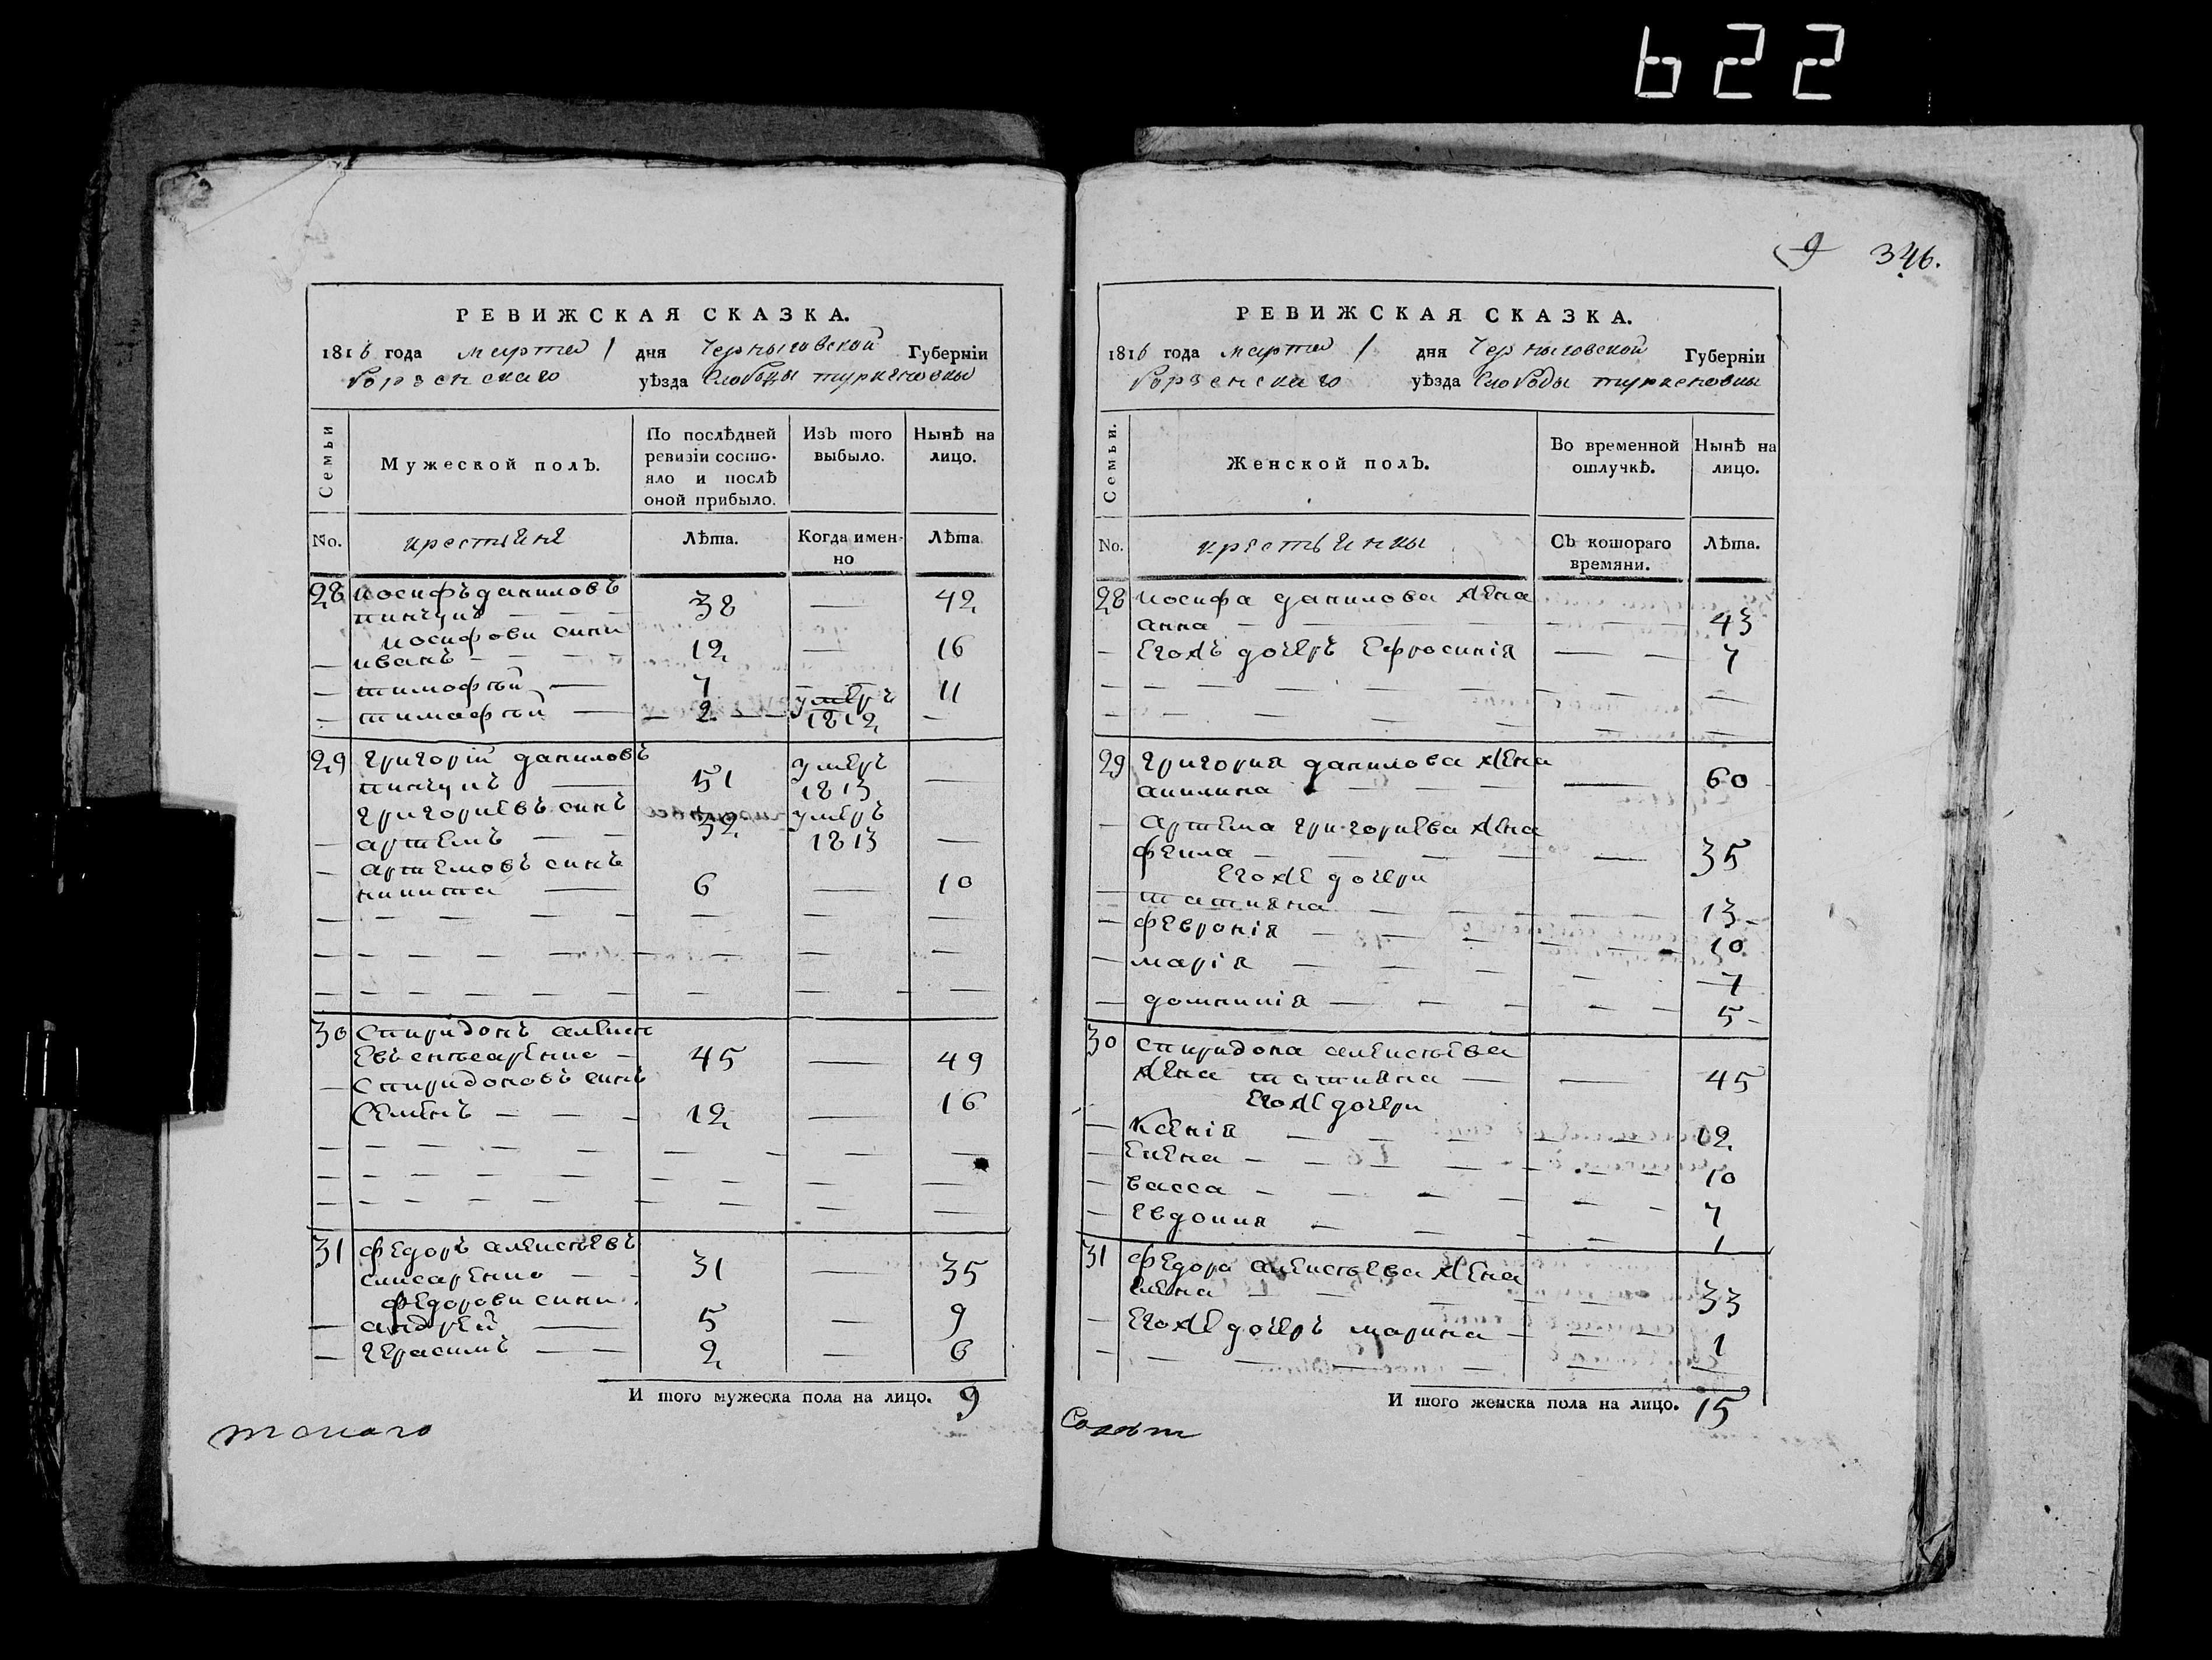 622
9 346.
РЕВИЖСКАЯ СКАЗКА.
1816 года марта 1 дня Черныговской Губернїи
Борзенскаго уѣзда Слободы туркеновки
Семьи
Мужеской полЪ.
По послѣдней ревизїи состо-
яло и послѣ оной прибыло.
ИзЪ того выбыло.
Нынѣ на лицо.
No.
крестьяне
Лѣта.
Когда имен-
но
Лѣта
28 иосифъ даниловъ
38 — 42
иосифови сини
— иванъ — 12 — 16
— тимофѣй — 7 — 11
— тимофѣй — 2 — умеръ 1812 —
29 григорій даниловъ
51 умеръ 1813 —
григориевъ синъ
— артемъ — 32 умеръ 1813 —
— артемовъ синъ
никита — 6 — 10
30 Спиридонъ алексѣ
евъ 45 — 49
— Спиридоновъ синъ
Семенъ — 12 — 16
31 федоръ алексѣевъ
слисаренко — 31 — 35
федорови сини
— андрей — 5 — 9
— герасимъ — 2 — 6
И того мужеска пола на лицо. 9
такого
РЕВИЖСКАЯ СКАЗКА.
1816 года марта 1 дня Черныговской Губернїи
Борзенскаго уѣзда Слободы туркеновки
Семьи.
Женской полЪ.
Во временной отлучкѣ.
Нынѣ на лицо.
No.
крестьянки
СЪ котораго времяни.
Лѣта.
28 иосифа данилова жена
анна — 43
— Егожъ дочеръ Ефросинія — 7
29 григория данилова жена
акилина — 60
— артема григориева жена
фекла — 35
Егоже дочери
— татияна — 13
— февронія — 10
— марія — 7
— домникія — 5
30 Спиридона алексѣева
жена татияна — 45
Егоже дочери
— Ксенія — 12
— Елена — 10
— васса — 7
— Евдокия — 1
31 федора алексѣева жена
елена — 33
— Егоже дочеръ марина — 1
И того женска пола на лицо. 15